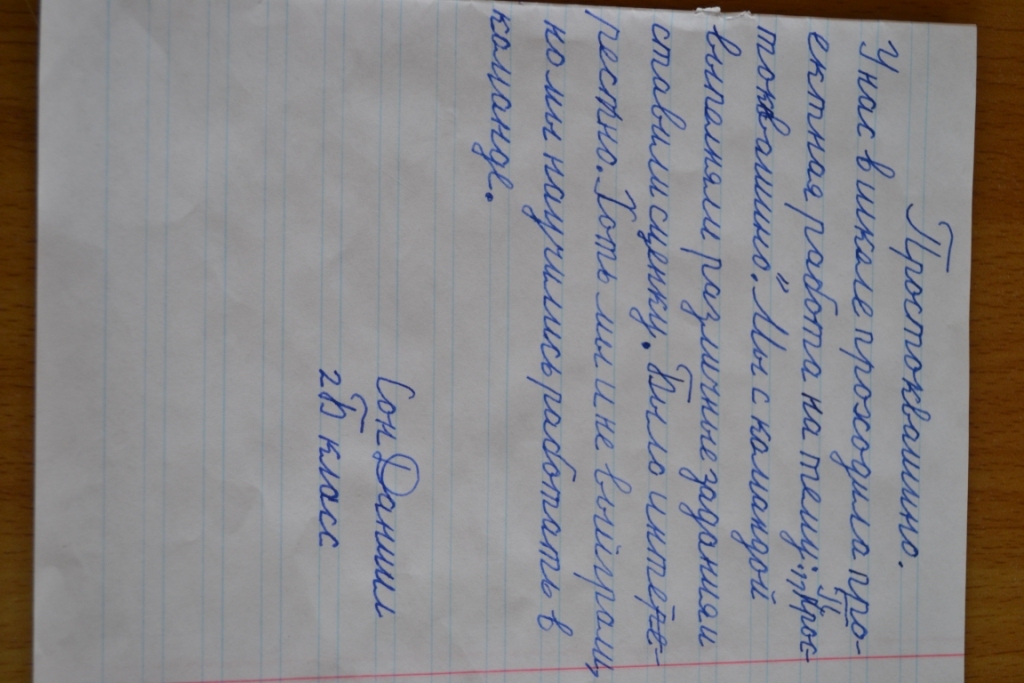 Простоквашино.
У нас в школе проходила про-
ектная работа на тему: „Прос-
токвашино." Мы с командой
выполняли различные задания и
ставили сценку. Было интере-
рестно. Хоть мы и не выйграли,
но мы научились работать в
команде.
Сон Даниил
2Б класс